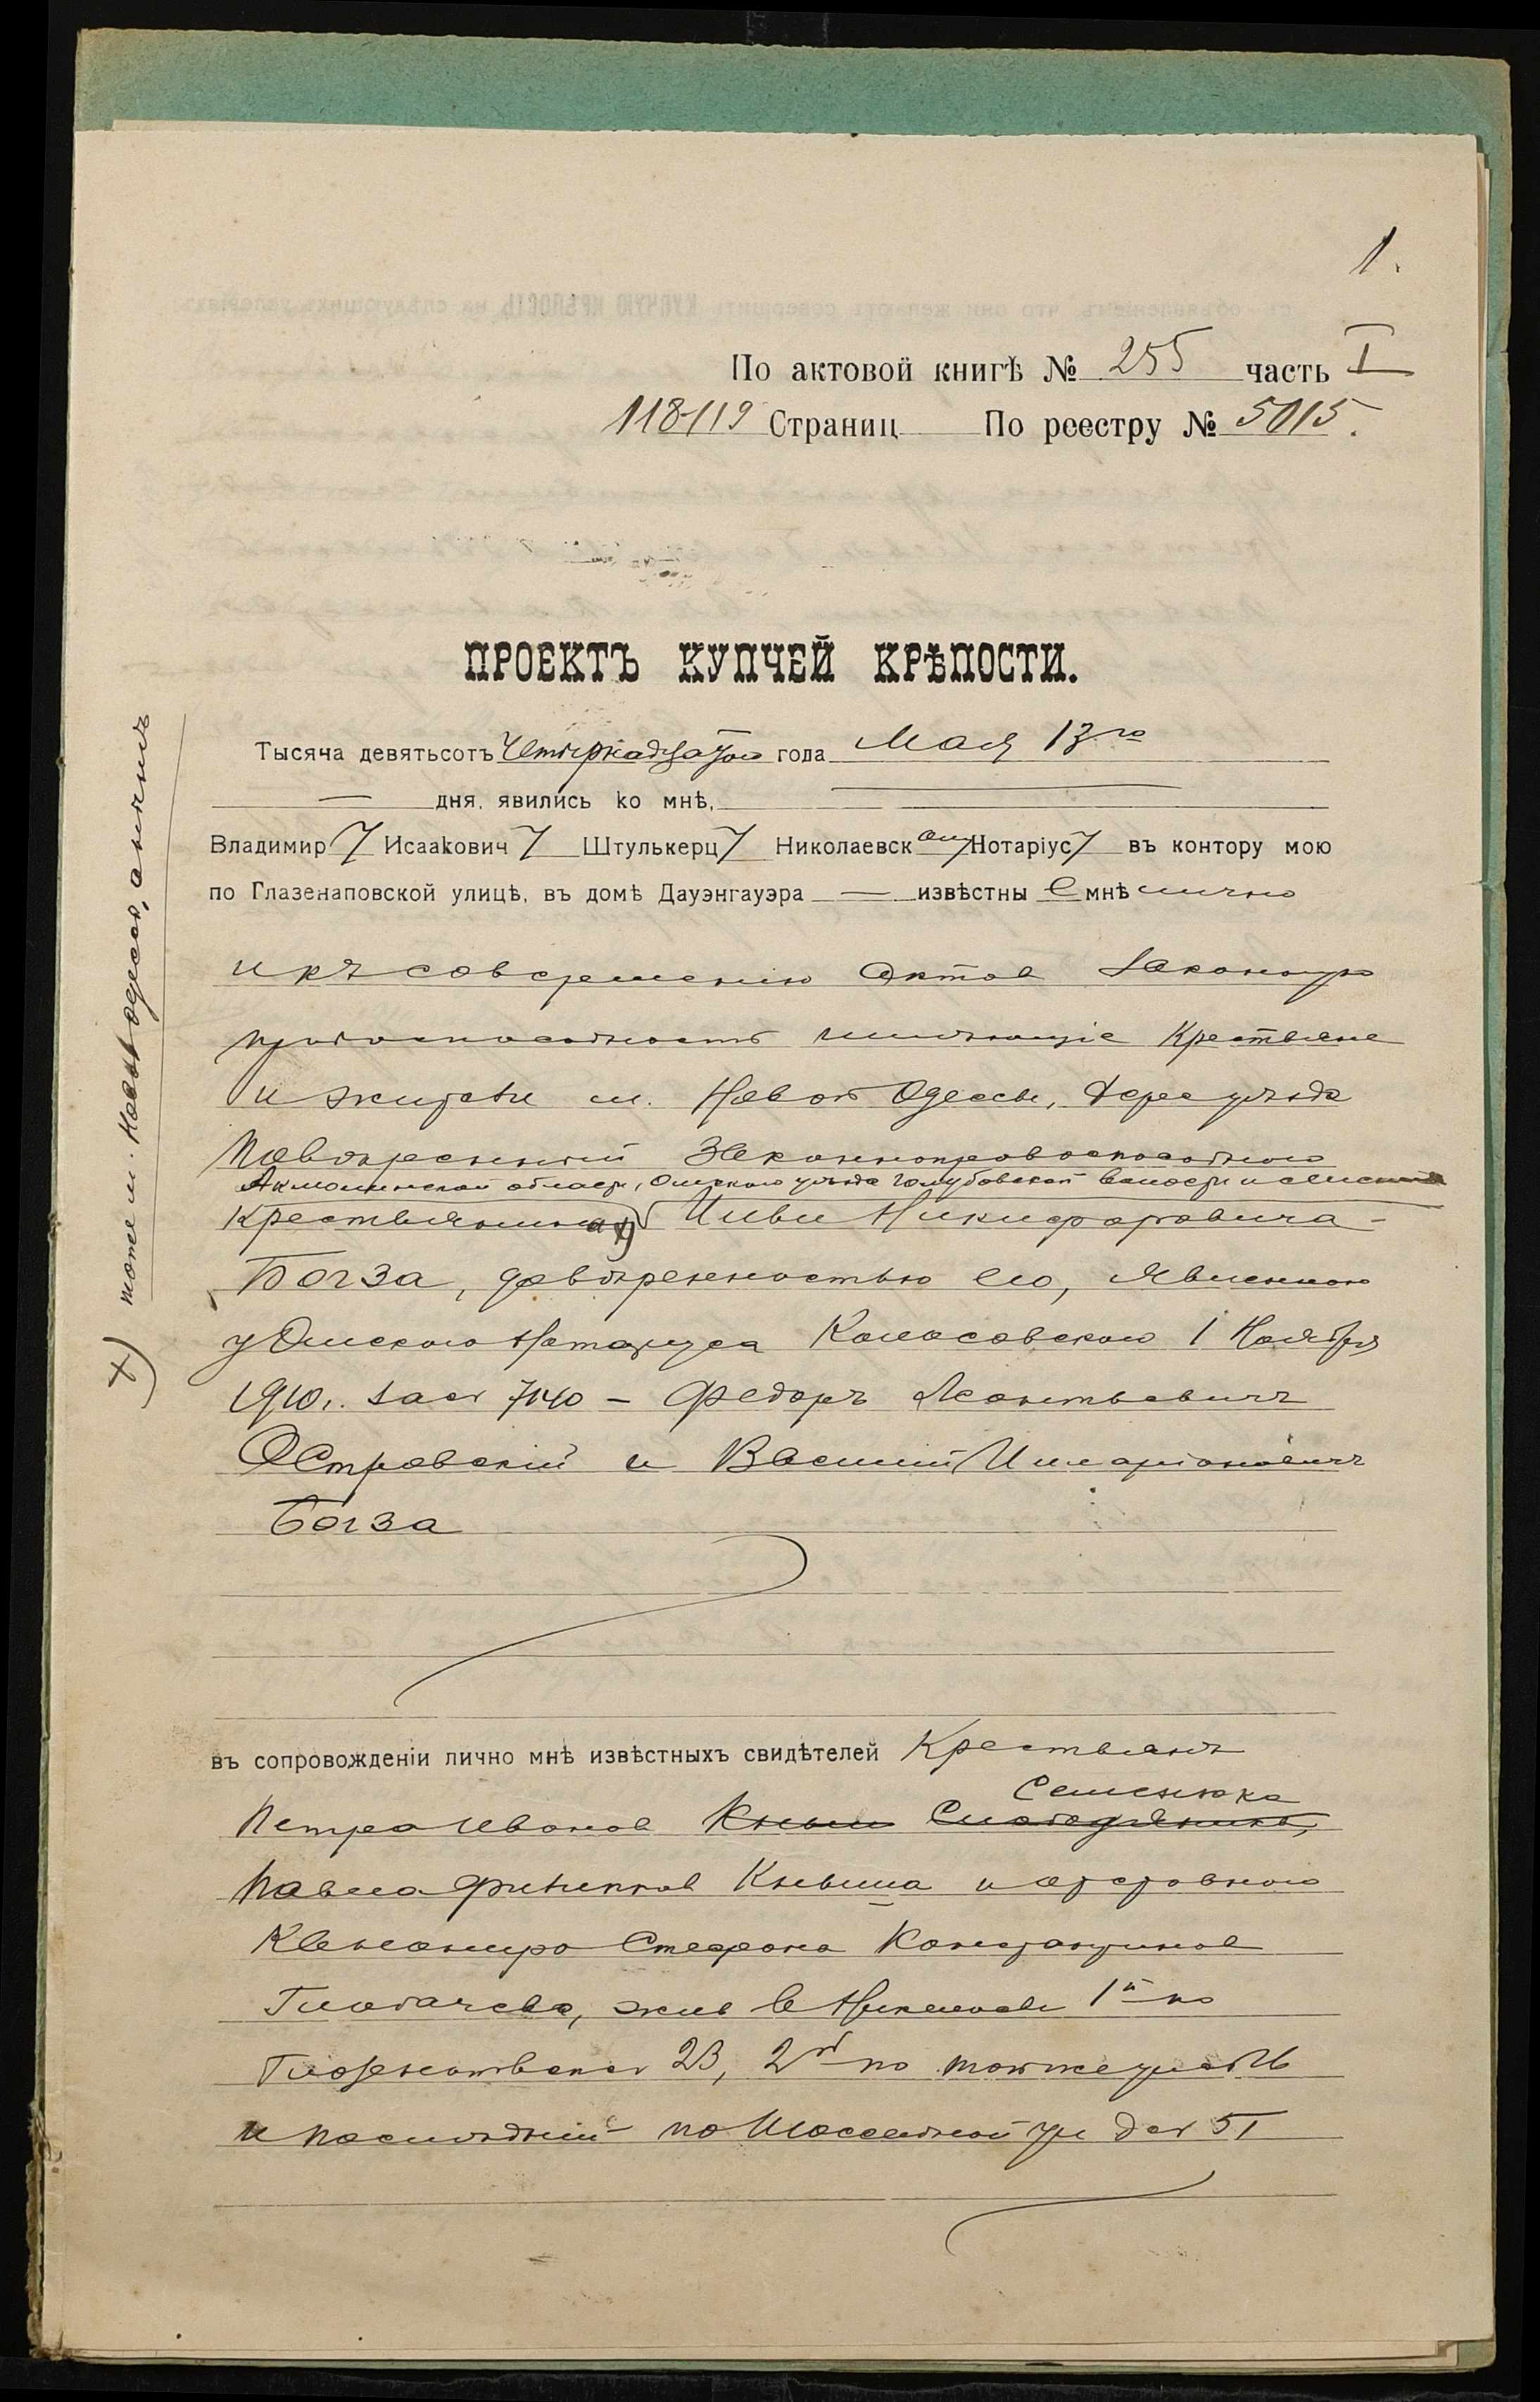 1.
По актовой книгѣ № 255 часть I
118-119 Страниц По реестру № 5015.
ПРОЕКТЪ КУПЧЕЙ КРѢПОСТИ.
Тысяча девятьсотъ четырнадцатого года Мая 13го
дня, явились ко мнѣ,
Владимир Исаакович Штулькерц Николаевск ому Нотаріус въ контору мою
по Глазенаповской улицѣ, въ домѣ Дауэнгауэра — извѣстные мнѣ лично
и къ совершенію актов законную
правоспособность имѣющіе Крестьяне
и жители м. Новой Одессы, Херс уѣзда
Повѣренный Законноправоспособного
Акмолинской области, Омского уѣзда Голубовской волости и селения
крестьянина х) Никифоровича
Богза, довѣренностью его, явленною
у Омского Нотаріуса Колосовского 1 Ноября
1910г. 7140 – Федоръ Леонтьевич
Островскій и Василій Иларіонович
Богза
х) тоже м. Новой Одессы, а ныне
въ сопровожденіи лично мнѣ извѣстныхъ свидѣтелей Крестьянъ
Петра Иванов Кныш Семенюка
Павла Филиппов Кныша и отставного
Стефана Константинов
Глобачева, жив в Николаеве 1й по
23, 2й по той же ул
и послѣдній по Шоссейной ул д 51